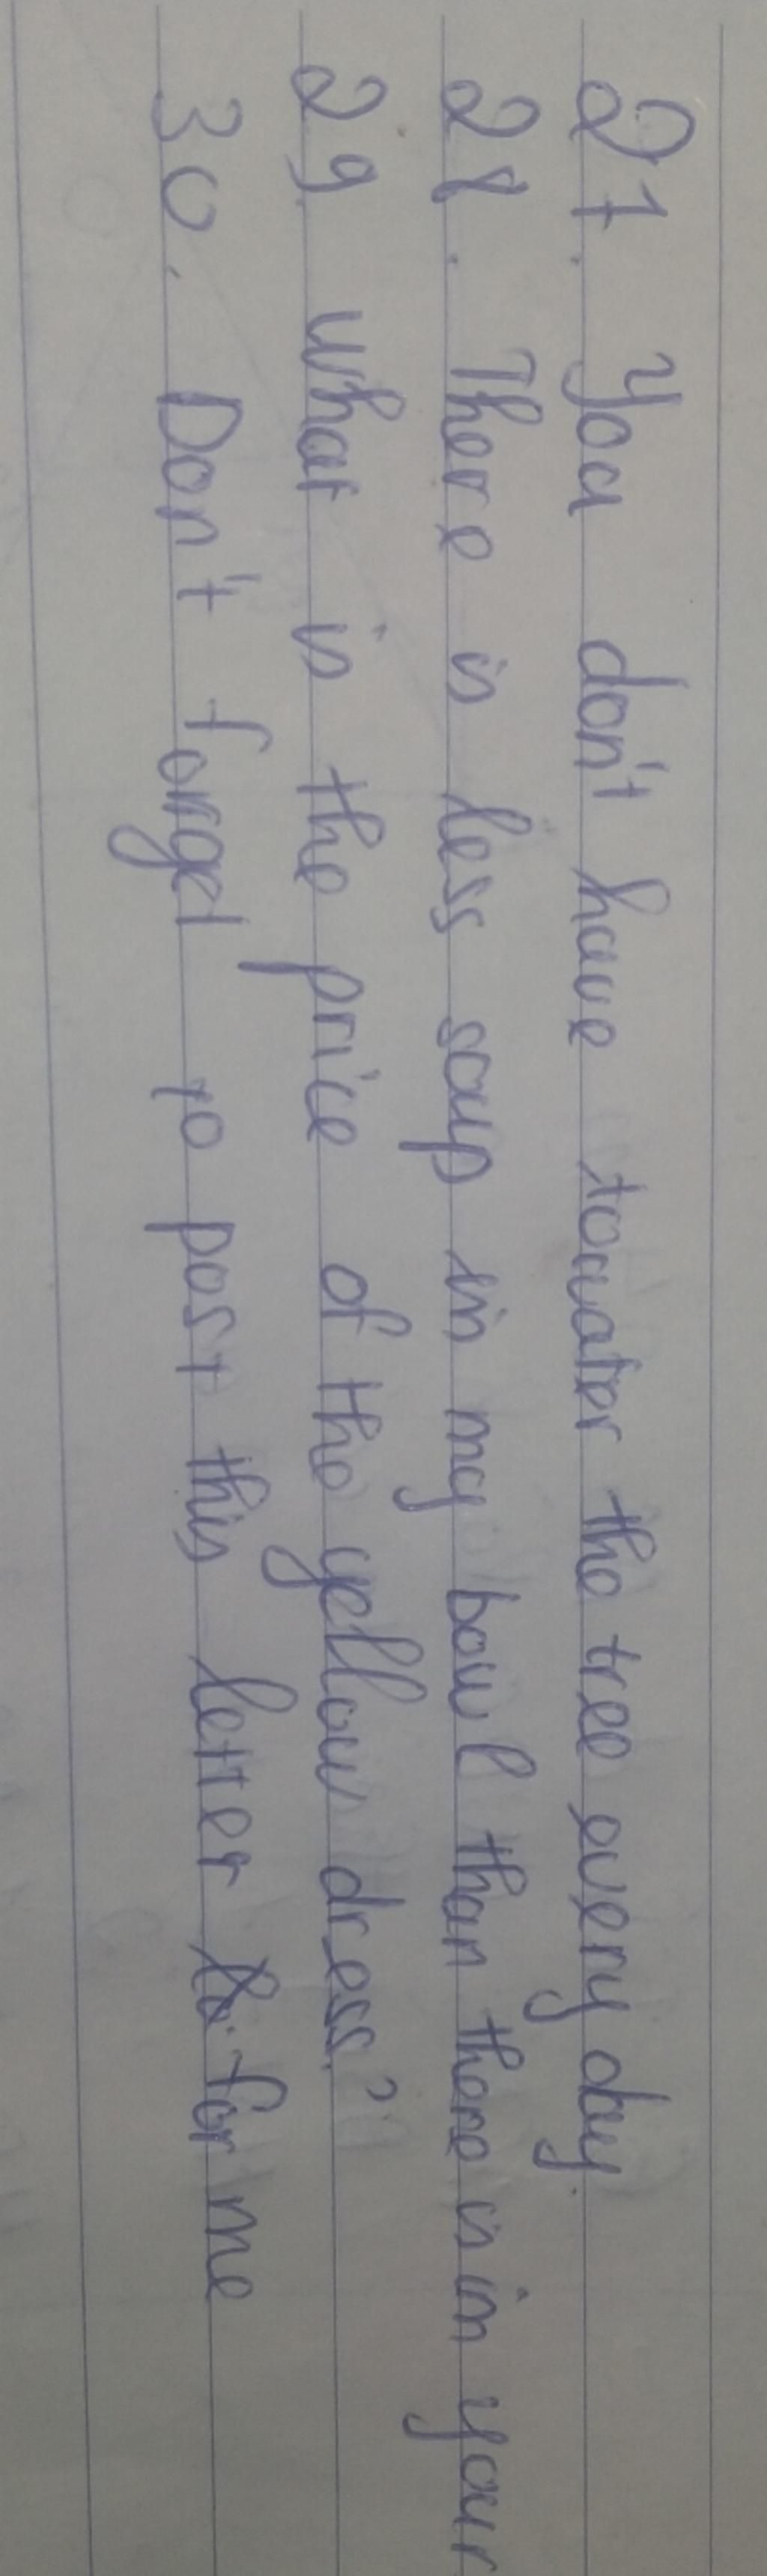 27. You don't have towater the tree every day.
28. There is less soup in my bowl than there is in your
29. what is the price of the yellow dress?
30. Don't forget to post this letter for me